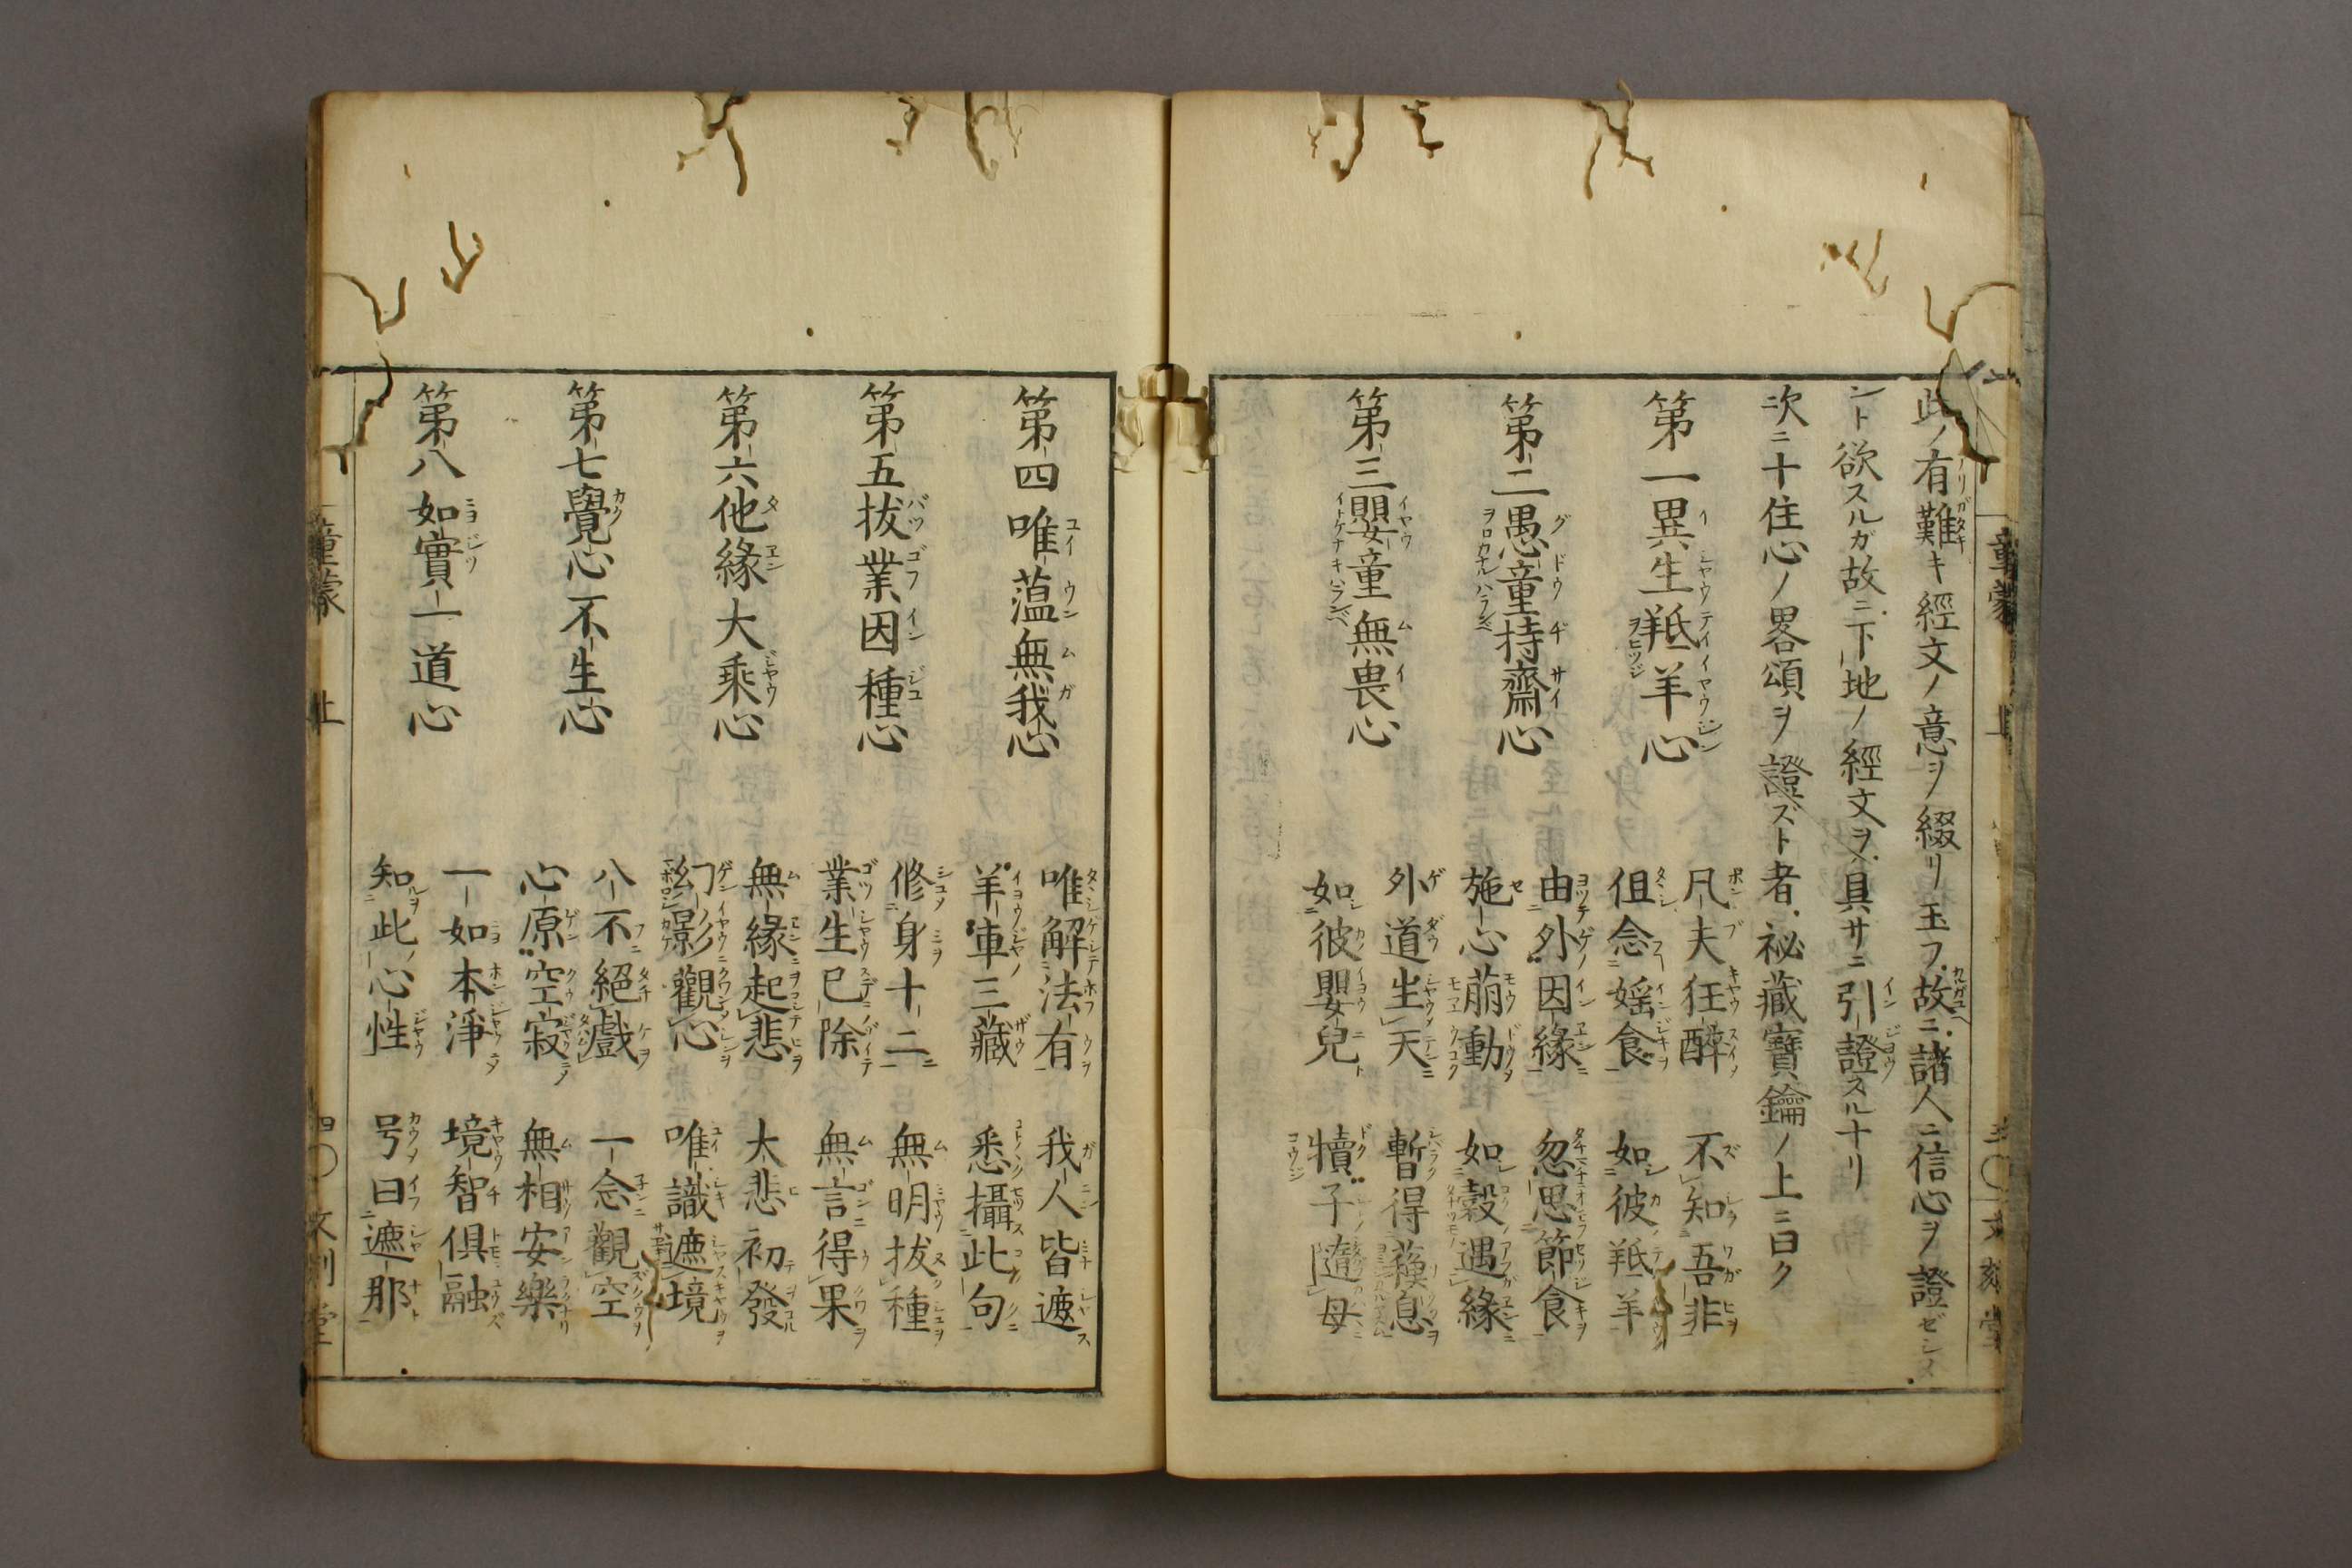 此ノ有難キ經文ノ意ヲ綴リ玉フ故ニ諸人ニ信心ヲ證ゼシメ
ント欲スルガ故ニ下地ノ經文ヲ具サニ引證スルナリ
次ニ十住心ノ畧頌ヲ證ズト者祕藏寶鑰ノ上ニ曰ク
第一異生羝羊心
凡夫狂醉 不知吾非
但念婬食 如彼羝羊
第二愚童持齋心
由外因緣 忽思節食
施心萠動 如穀遇緣
第三嬰童無畏心
外道生天 暫得蘓息
如彼嬰兒 犢子隨母
第四唯薀無我心
唯解法有 我人皆遮
羊車三藏 悉攝此句
第五拔業因種心
修身十二 無明拔種
業生已除 無言得果
第六他緣大乘心
無緣起悲 大悲初發
幻影觀心 唯識遮境
第七覺心不生心
八不絕戲 一念觀空
心原空寂 無相安樂
第八如實一道心
一如本淨 境智俱融
知此心性 号曰遮那
童蒙 上
四〇文刻堂